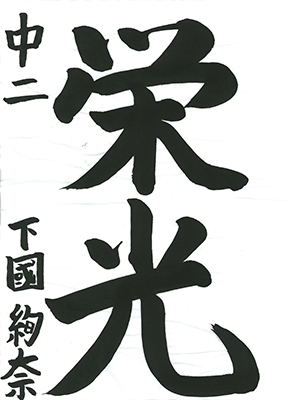 栄光
中二 下國絢奈